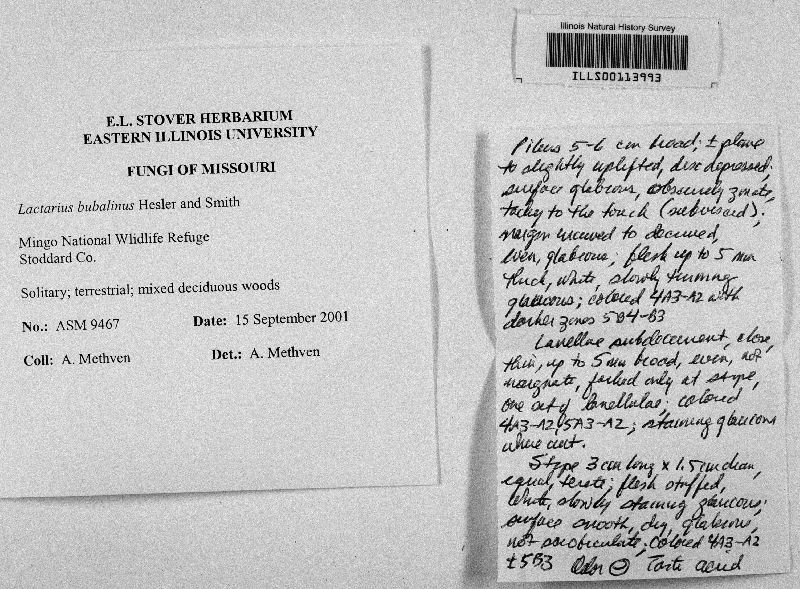 E.L. STOVER HERBARIUM
EASTERN ILLINOIS UNIVERSITY
FUNGI OF MISSOURI
Lactarius bubalinus Hesler and Smith
Mingo National Whdlife Refuge
Stoddard Co.
Solitary; terrestrial; mixed deciduous woods
No.: ASM 9467 Date: 15 September 2001
Coll: A. Methven Det.: A. Methven
Illinois Natural History Survey
ILLS00113993
Pileus 5-6 cm broad; ± plane
to slightly uplifted, disc depressed;
surface glabrous, obscurely zonate,
tacky to the touch (subviscid);
margin incurved to decurved,
even, glabrous; flesh up to 5 mm
thick, white, slowly turning
glaucous; colored 4A3-A2 with
darker zones 5B4-B3
Lamellae subdecurrent, close,
thin, up to 5 mm broad, even, not
marginate, forked only at stipe,
one set of lamellulae; colored
4A3-A2/5A3-A2; staining glaucous
where cut.
Stipe 3 cm long x 1.5 cm diam,
equal, terete; flesh stuffed,
white, slowly staining glaucous;
surface smooth, dry, glabrous,
not scrobiculate; colored 4A3-A2
± 5B3 Odor ⊖ Taste acrid